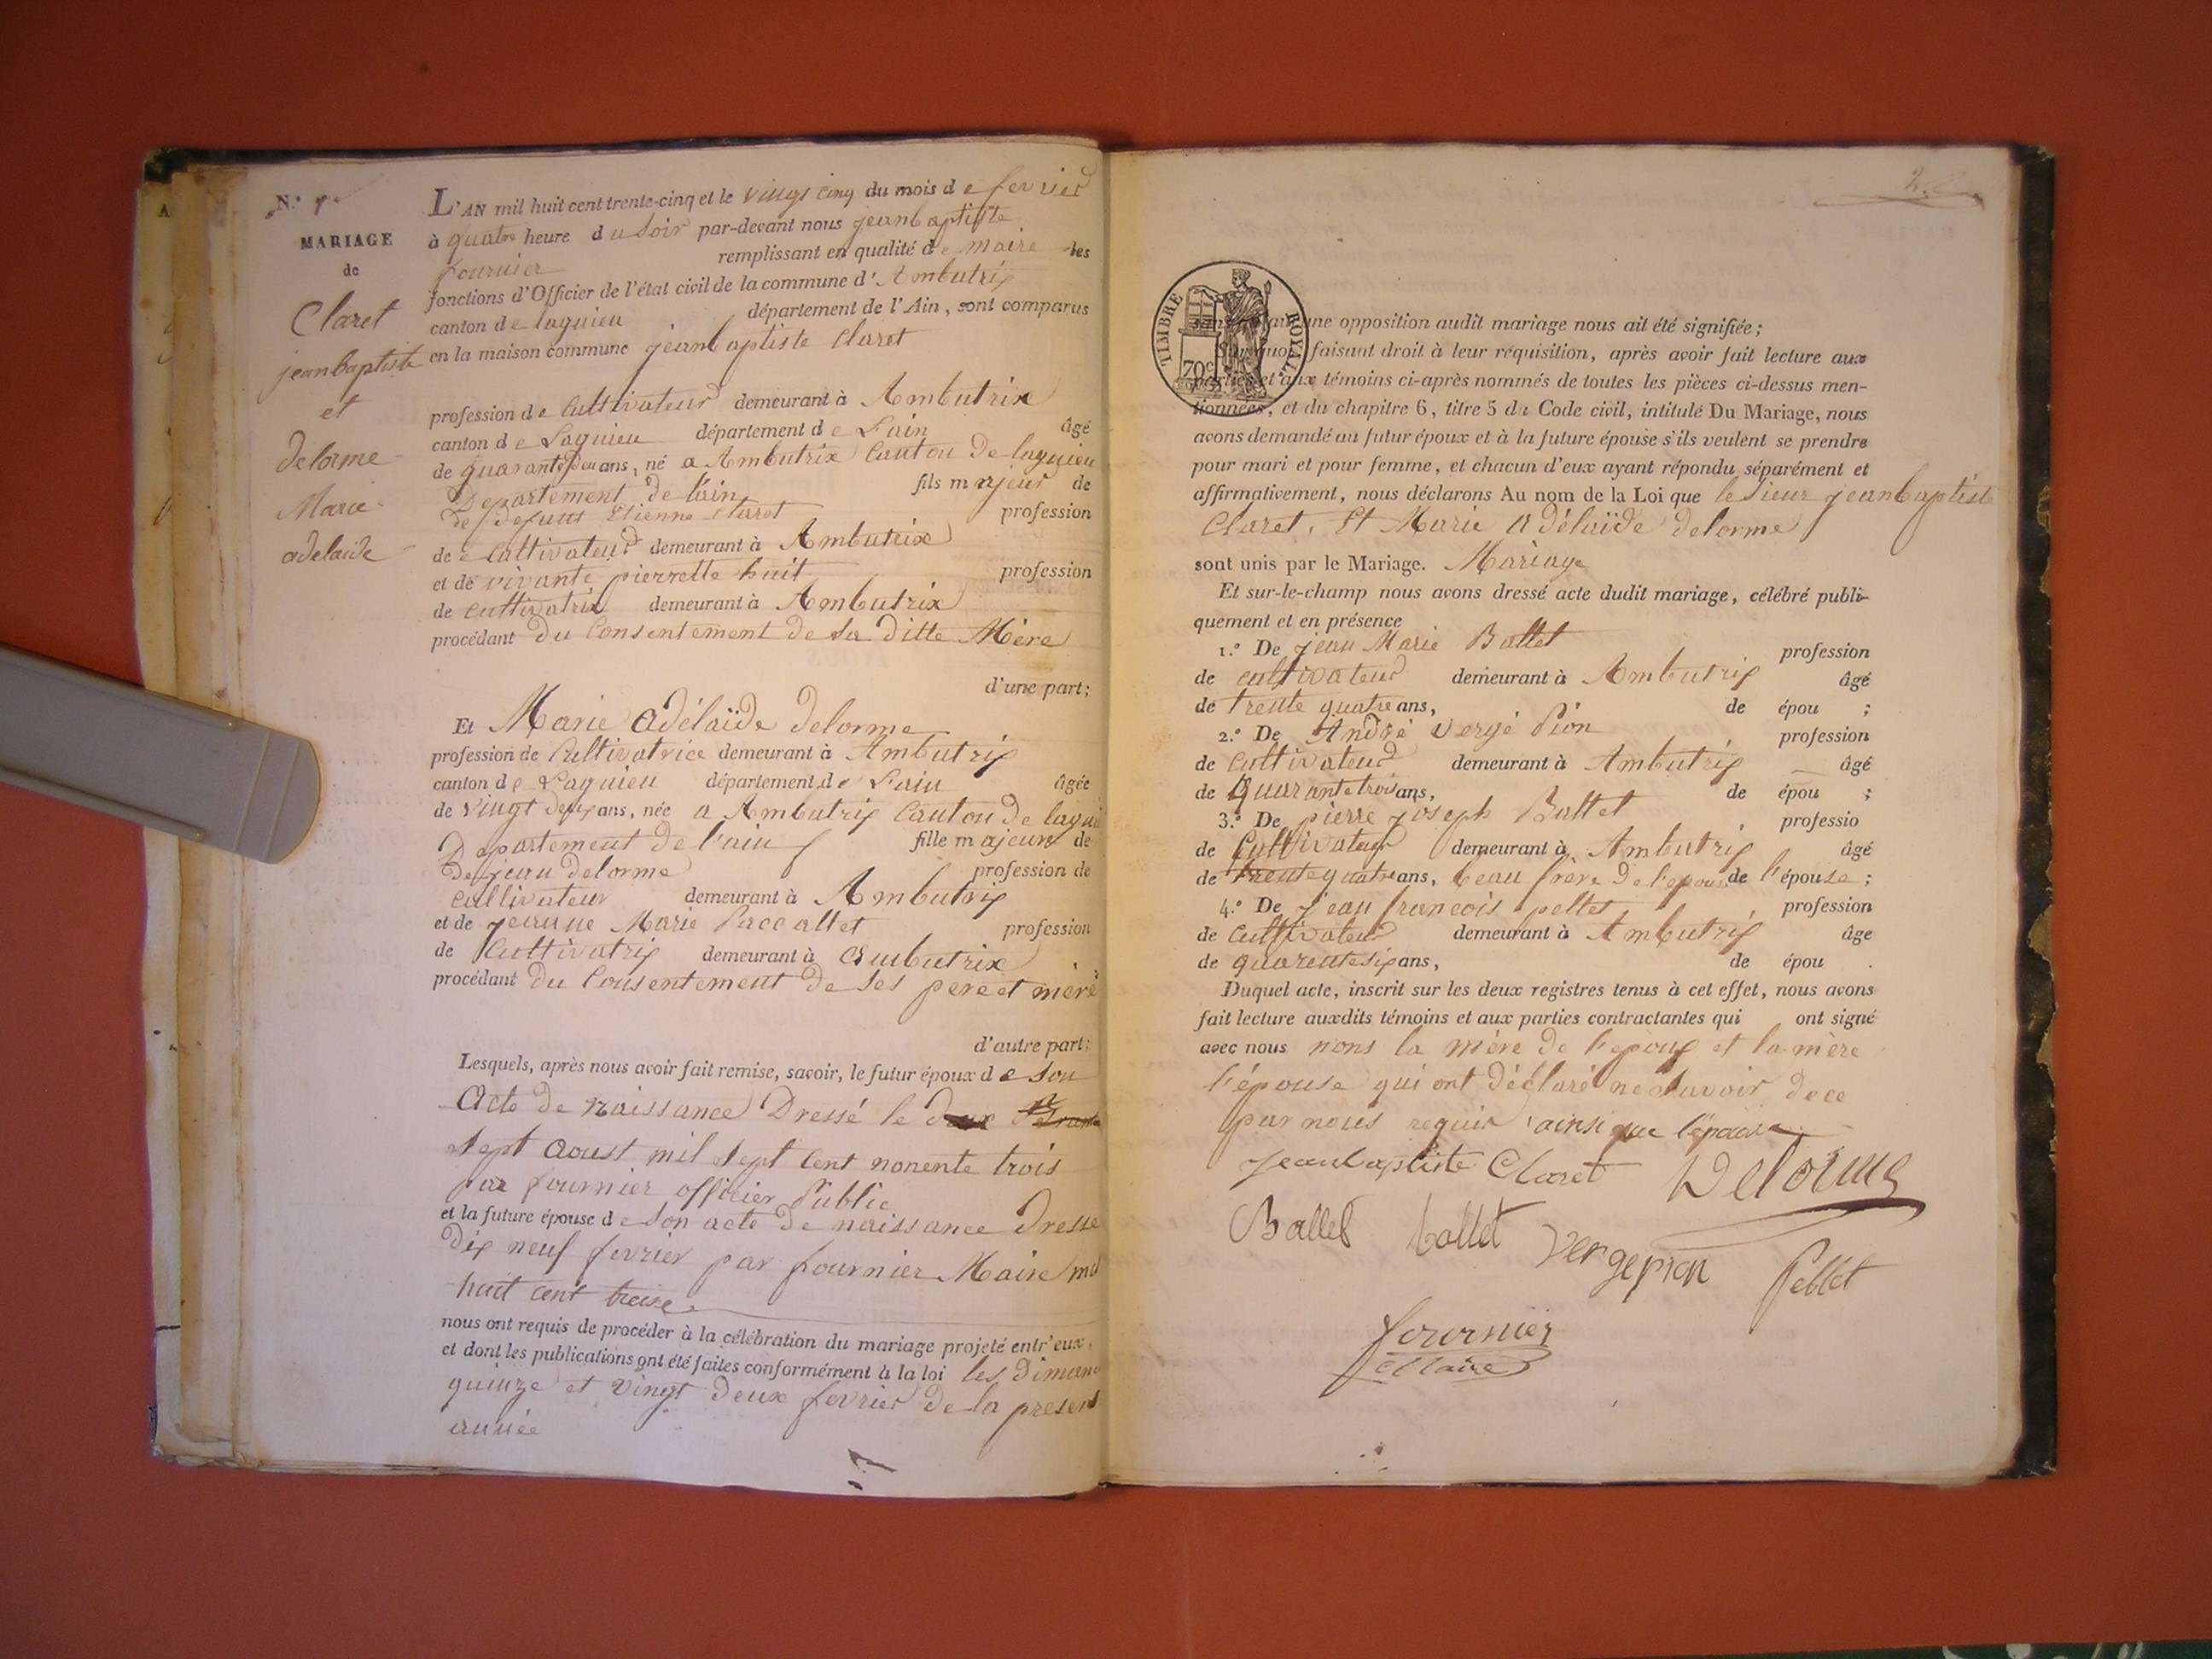 N.° 1
MARIAGE
de
Claret
jeanbaptiste
et
delorme
Marie
adelaide
L'AN mil huit cent trente-cinq et le vingt cinq du mois de fevrier
à quatre heure du soir par-devant nous jeanbaptiste
fournier remplissant en qualité de maire les
fonctions d'Officier de l'état civil de la commune d'Ambutrix
canton de lagnieu département de l'Ain, sont comparus
en la maison commune jeanbaptiste Claret
profession de Cultivateur demeurant à Ambutrix
canton de Lagnieu département de L'ain âgé
de quarante deux ans, né a Ambutrix Canton De lagnieu
Departement de l'ain fils majeur de
de defunt Etienne Claret profession
de Cultivateur demeurant à Ambutrix
et de vivante pierrette huit profession
de cultivatrix demeurant à Ambutrix
procédant du Consentement de Sa ditte Mère
d'une part;
Et Marie Adélaïde delorme
profession de Cultivatrice demeurant à Ambutrix
canton de Lagnieu département de L'ain âgée
de vingt deux ans, née a Ambutrix Canton de lagni
Departement de l'ain fille majeure de
De jean delorme profession de
cultivateur demeurant à Ambutrix
et de jeanne Marie Paccallet profession
de Cultivatrix demeurant à Ambutrix
procédant du Consentement de Ses pere et mère
d'autre part;
Lesquels, après nous avoir fait remise, savoir, le futur époux de Son
Acte de naissance Dressé le
Sept Aoust mil Sept Cent nonente trois
par fournier officier Public
et la future épouse de Son acte de naissance Dresse
Dix neuf fevrier par fournier Maire mil
huit cent treize
nous ont requis de procéder à la célébration du mariage projeté entr'eux,
et dont les publications ont été faites conformément à la loi les Diman
quinze et vingt deux fevrier De la present
année
2.
TIMBRE ROYAL
70c
sans qu'aucune opposition audit mariage nous ait été signifiée;
Sur quoi, faisant droit à leur réquisition, après avoir fait lecture aux
parties et aux témoins ci-après nommés de toutes les pièces ci-dessus men-
tionnées, et du chapitre 6, titre 5 du Code civil, intitulé Du Mariage, nous
avons demandé au futur époux et à la future épouse s'ils veulent se prendre
pour mari et pour femme, et chacun d'eux ayant répondu séparément et
affirmativement, nous déclarons Au nom de la Loi que le Sieur jeanbaptiste
Claret, Et Marie Adélaïde delorme
sont unis par le Mariage. Mariage
Et sur-le-champ nous avons dressé acte dudit mariage, célébré publi-
quement et en présence
1.° De jean Marie Ballet profession
de cultivateur demeurant à Ambutrix âgé
de trente quatre ans, de épou ;
2.° De André Vergé Pion profession
de Cultivateur demeurant à Ambutrix âgé
de Quarante trois ans, de épou ;
3.° De pierre joseph Ballet professio
de Cultivateur demeurant à Ambutrix âgé
de trente quatre ans, beau frère De l'epouse de l'épouse;
4.° De jean francois pellet profession
de Cultivateur demeurant à Ambutrix âge
de quarente six ans, de épou .
Duquel acte, inscrit sur les deux registres tenus à cet effet, nous avons
fait lecture auxdits témoins et aux parties contractantes qui ont signé
avec nous nons la mère De l'epoux et la mère
l'épouse qui ont Déclaré ne Savoir dece
par nous requis ainsi que l'épouse
Jeanbaptiste Claret Delorme
Ballet ballet vergepion Pellet
fournier
Maire